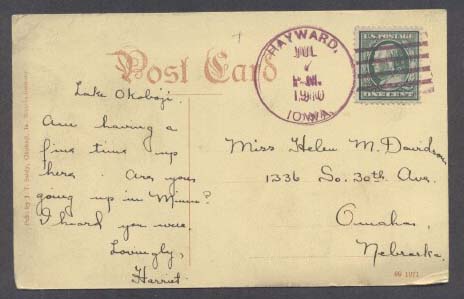 Post Card
HAYWARD,
JUL
7
P.M.
1910
IOWA.
U.S. POSTAGE
ONE CENT
Lake Okoboji.
Am having a
fine time up
here. Are you
going up in Minn?
I heard you were.
Lovingly,
Harriet
Miss Helen M. Davidson
1336 So. 30th Ave.
Omaha,
Nebraska.